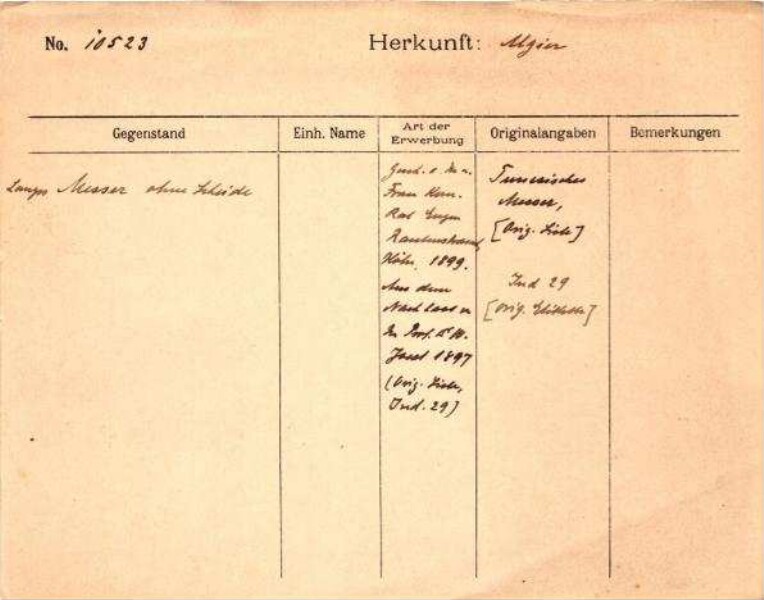 No. 10523
Herkunft: Algier
Gegenstand
Einh. Name
Art der
Erwerbung
Originalangaben
Bemerkungen
Langes Messer ohne Scheide
Gesch. v.
Frau Kom.
Rat Eugen
Rautenstrauch,
Köln, 1899.
Aus dem
Nachlass v.
Prof. Dr. W.
Joest 1897
(Orig. Liste,
Ind. 29)
Tunesisches
Messer,
[Orig. Liste]
Ind 29
[Orig. Etikette]